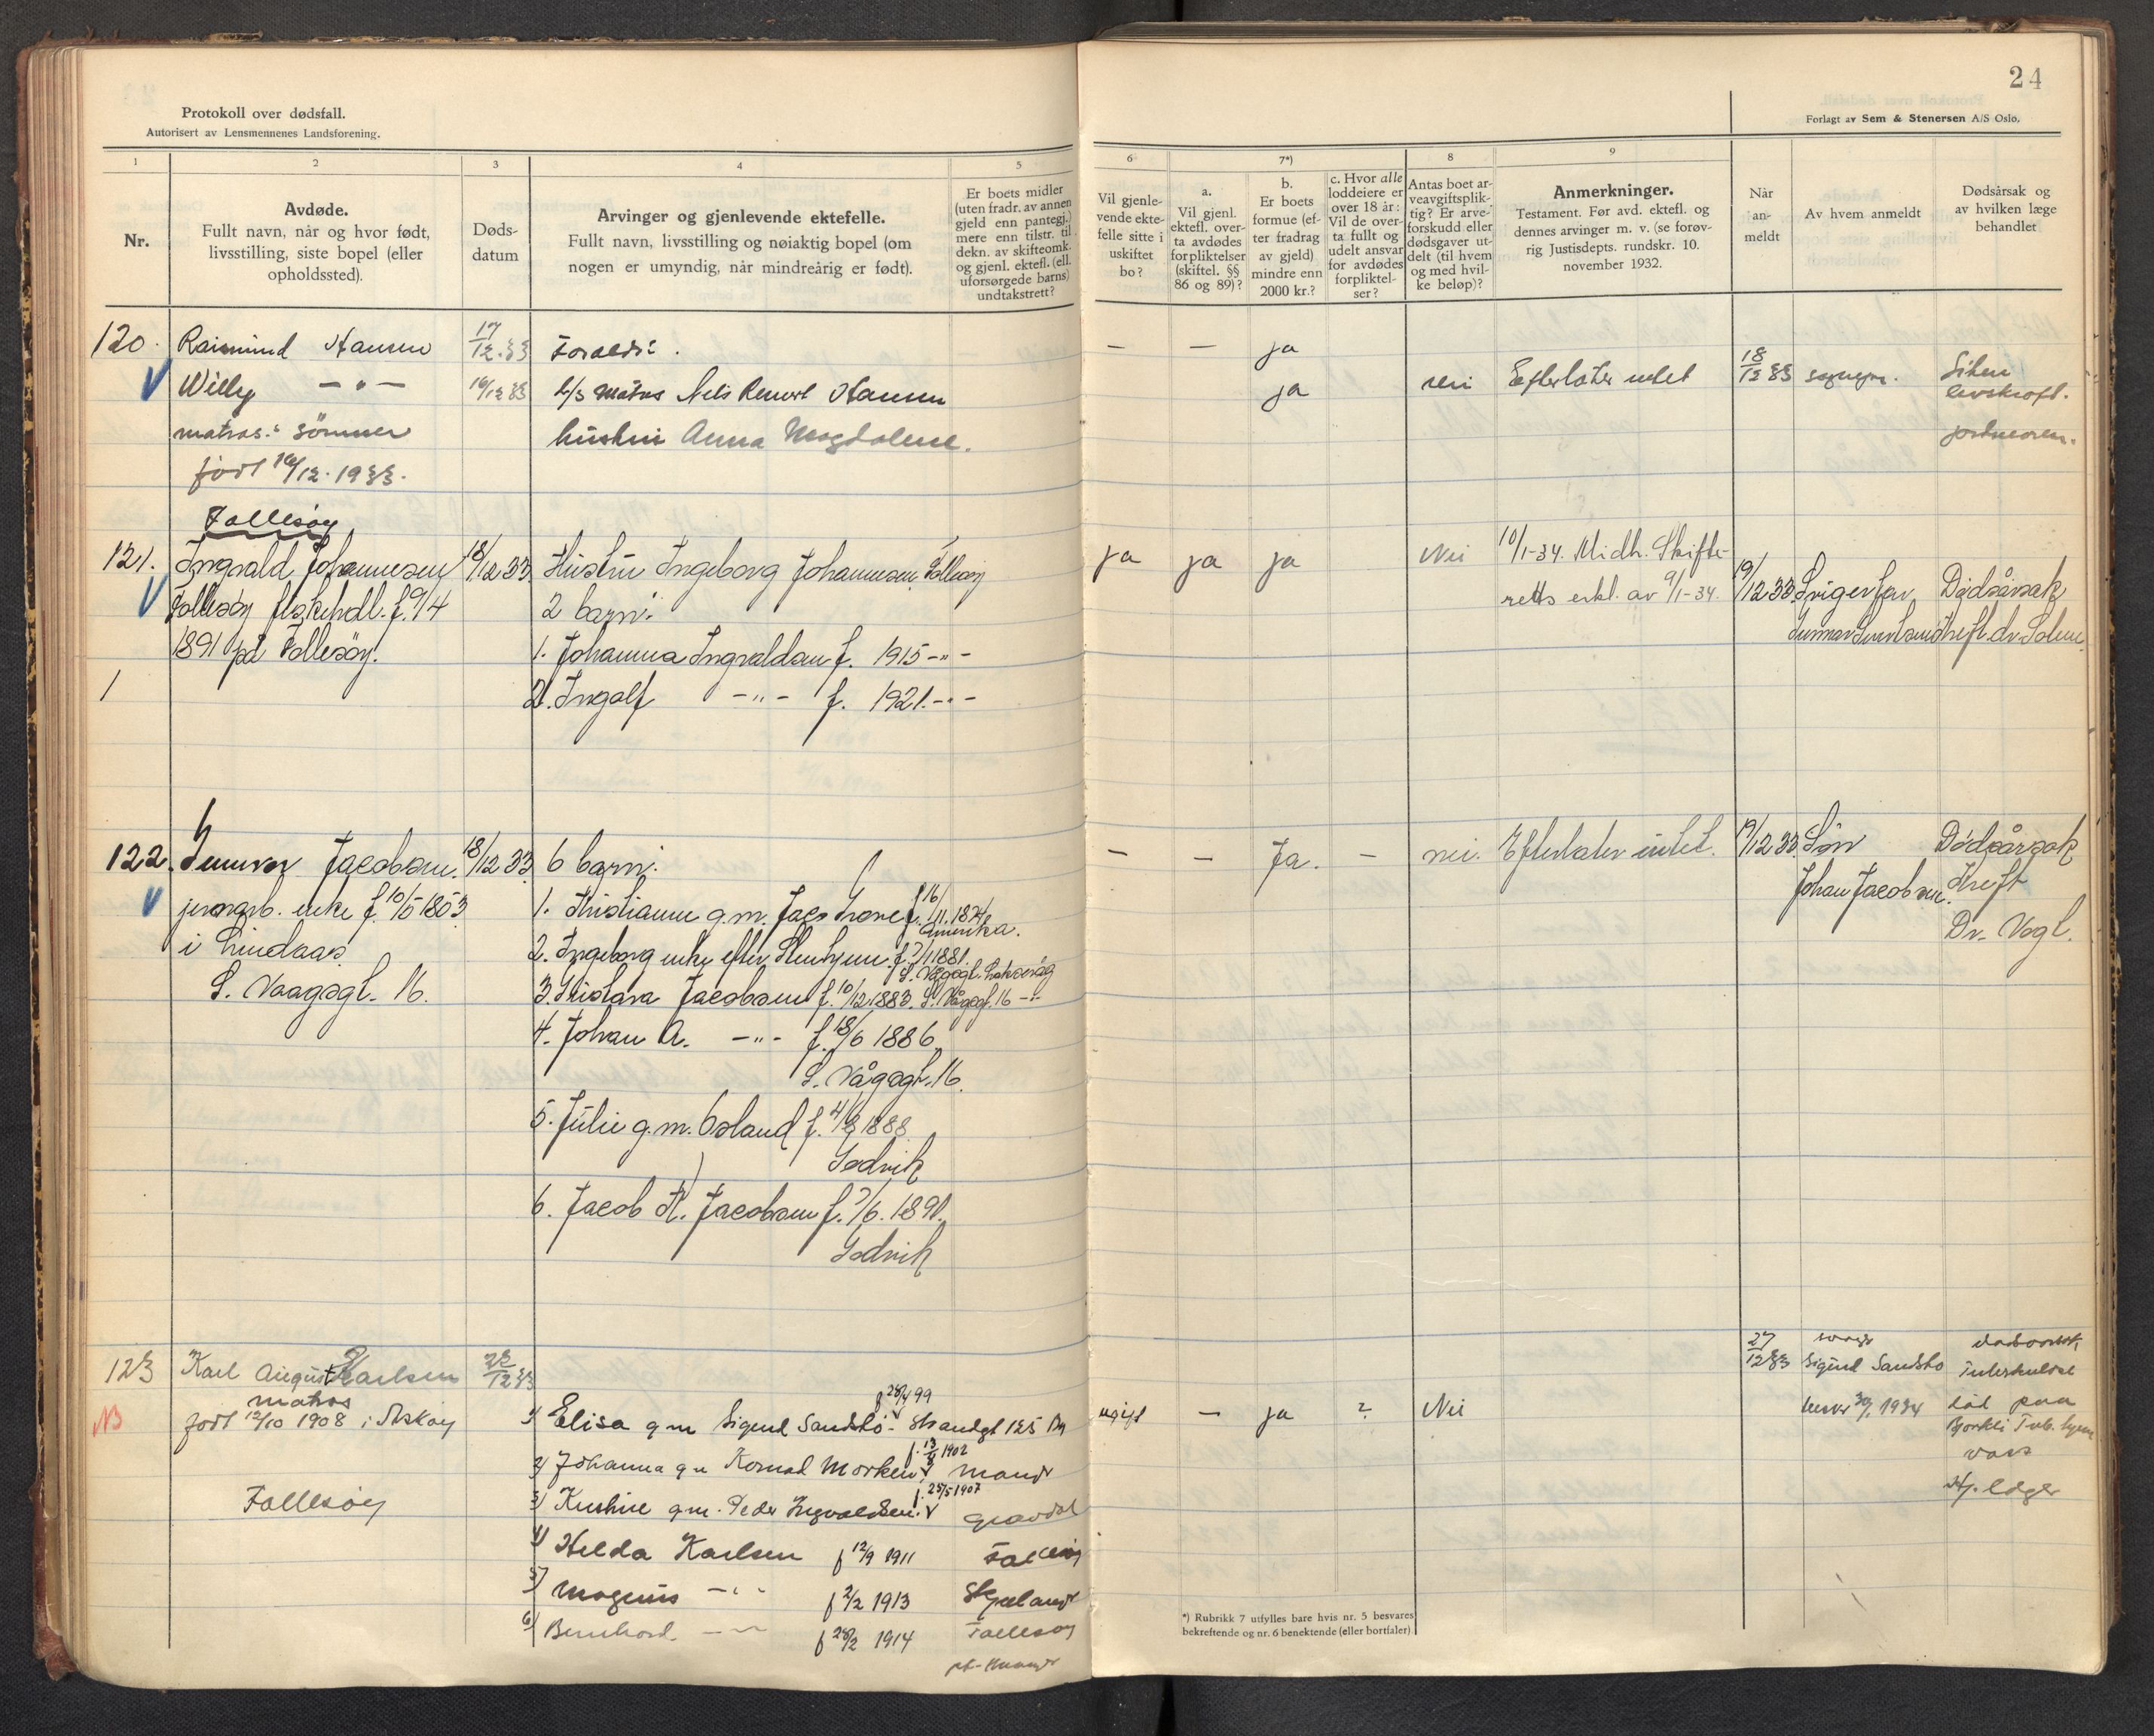 24
Protokoll over dødsfall.
Autorisert av Lensmennenes Landsforening.
Forlagt av Sem & Stenersen A/S Oslo.
1
2
3
4
5
6
7*)
8
9
Nr.
Avdøde.
Fullt navn, når og hvor født,
livsstilling, siste bopel (eller
opholdssted).
Døds-
datum
Arvinger og gjenlevende ektefelle.
Fullt navn, livsstilling og nøiaktig bopel (om
nogen er umyndig, når mindreårig er født).
Er boets midler
(uten fradr. av annen
gjeld enn pantegj.)
mere enn tilstr. til
dekn. av skifteomk.
og gjenl. ektefl. (ell.
uforsørgede barns)
undtakstrett?
Vil gjenle-
vende ekte-
felle sitte i
uskiftet
bo?
a.
Vil gjenl.
ektefl. over-
ta avdødes
forpliktelser
(skiftel. §§
86 og 89)?
b.
Er boets
formue (ef-
ter fradrag
av gjeld)
mindre enn
2000 kr.?
c. Hvor alle
loddeiere er
over 18 år:
Vil de over-
ta fullt og
udelt ansvar
for avdødes
forpliktel-
ser?
Antas boet ar-
veavgiftsplik-
tig? Er arve-
forskudd eller
dødsgaver ut-
delt (til hvem
og med hvil-
ke beløp)?
Anmerkninger.
Testament. Før avd. ektefl. og
dennes arvinger m. v. (se forøv-
rig Justisdepts. rundskr. 10.
november 1932.
Når
an-
meldt
Av hvem anmeldt
Dødsårsak og
av hvilken læge
behandlet
120. Raimund Hansen 17/12.33 Foreldre. — — ja
Willy —"— 16/12 33 Matros Nels Hansen ja nei Efterlater intet 18/12 33 Liten
matros. sønner hustru Anna Magdalene. livskraft.
født 16/12. 1933. jordmoren.
Follesøy
121. Ingvald Johannesen 18/12 33 Hustru Ingeborg Johannesen, Follesøy ja ja ja Nei 10/1-34. Midh. Skifte-
Follesøy fiskehdl. f. 9/4 2 barn: retts erkl. av 9/1-34. 19/12 33. Svigerfar Dødsårsak
1891 på Follesøy. 1. Johanna Ingvaldsen f. 1915 -"- Kreft. dr. Solem.
1 2. Ingolf -"- f. 1921. -"-
122. Gunvor Jacobsen. 18/12 33 6 barn: — — Ja. — nei. Efterlater intet. 19/12 33. Søn Dødsårsak
enke f. 10/5 1853 1. Kristianne g.m. f. 16/11. 1874 Johan Jacobsen. Kreft
i Lindaas Amerika. Dr. Vogl.
2. Ingeborg enke efter f. 7/1 1881.
L. Vaagsgt. 16. L. Vågsgt. Laksevåg
3. Jacobsen f. 10/12 1883. L. Vågsgt. 16 -"-
4. Johan A. -"- f. 18/6 1886
L. Vågsgt. 16.
5. Julie g.m. Osland f. 4/9 1888
Godvik
6. Jacob K. Jacobsen f. 7/6. 1891.
Godvik
123 Karl August Karlsen 22/12 33 27/12 33 Sigurd Sandstø Tuberkulose
matros f 28/4 99
NB født 12/10 1908 i Askøy 1) Elisa g m Sigurd Sandstø - Strandgt 125 ugift — ja ? Nei 30/1 1934 død paa
f. 13/8 1902 Tub. hjem
2) Johanna g m Konrad Morken
f. 25/5 1907
Follesøy 3) g.m. Peder Ingvaldsen. Gravdal læge
4) Helda Karlsen f 12/9 1911 Follesøy
5) Magnus -"- f 2/2 1913
6) Bernhard. -"- f 28/2 1914 Follesøy
*) Rubrikk 7 utfylles bare hvis nr. 5 besvares
bekreftende og nr. 6 benektende (eller bortfaler)